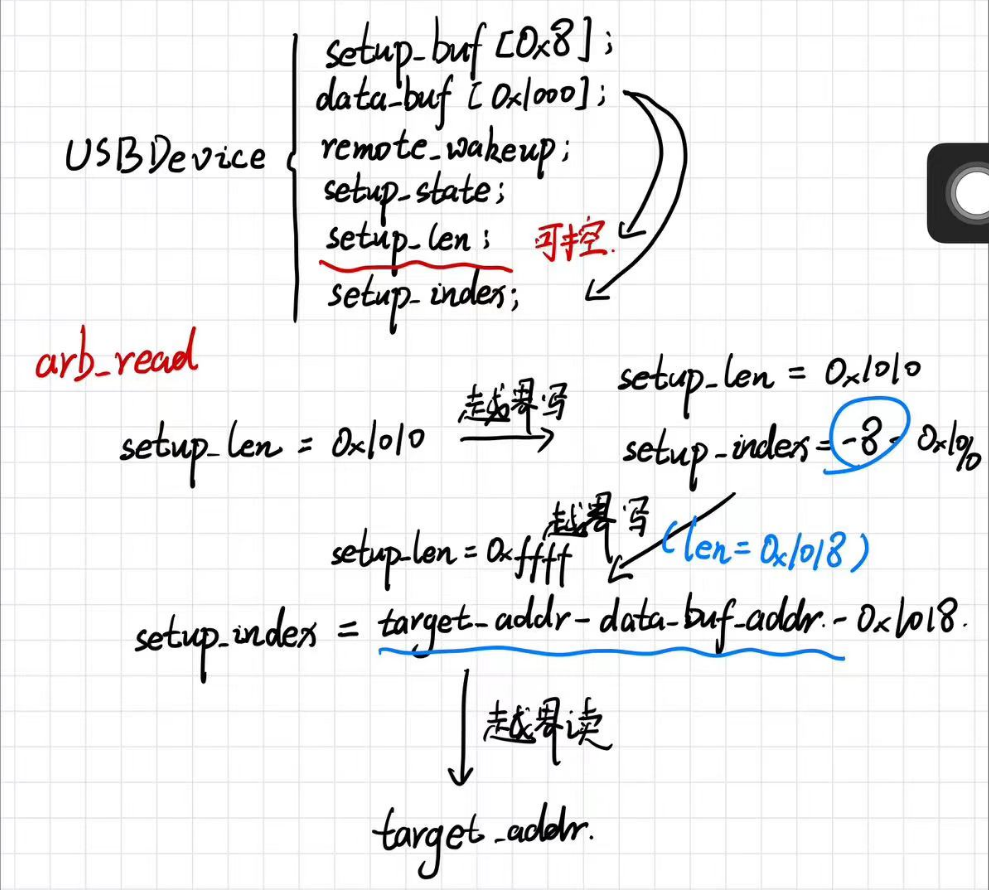 setup_buf [0x8];
data_buf [0x1000];
USBDevice
remote_wakeup;
setup_state;
setup_len; 可控.
setup_index;
arb_read
setup_len = 0x1010
越界写
setup_len = 0x1010
setup_index = -8 - 0x1010
越界写
(len=0x1018)
setup_len = 0xffff
setup_index = target_addr - data_buf_addr. - 0x1018.
越界读
target_addr.